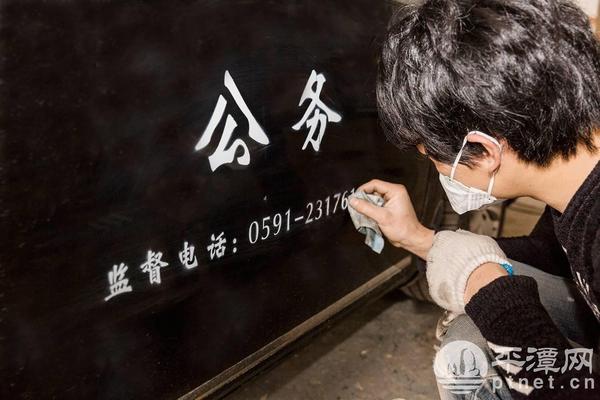 公务
监督电话：0591-23176
平潭网
ptnet.cn